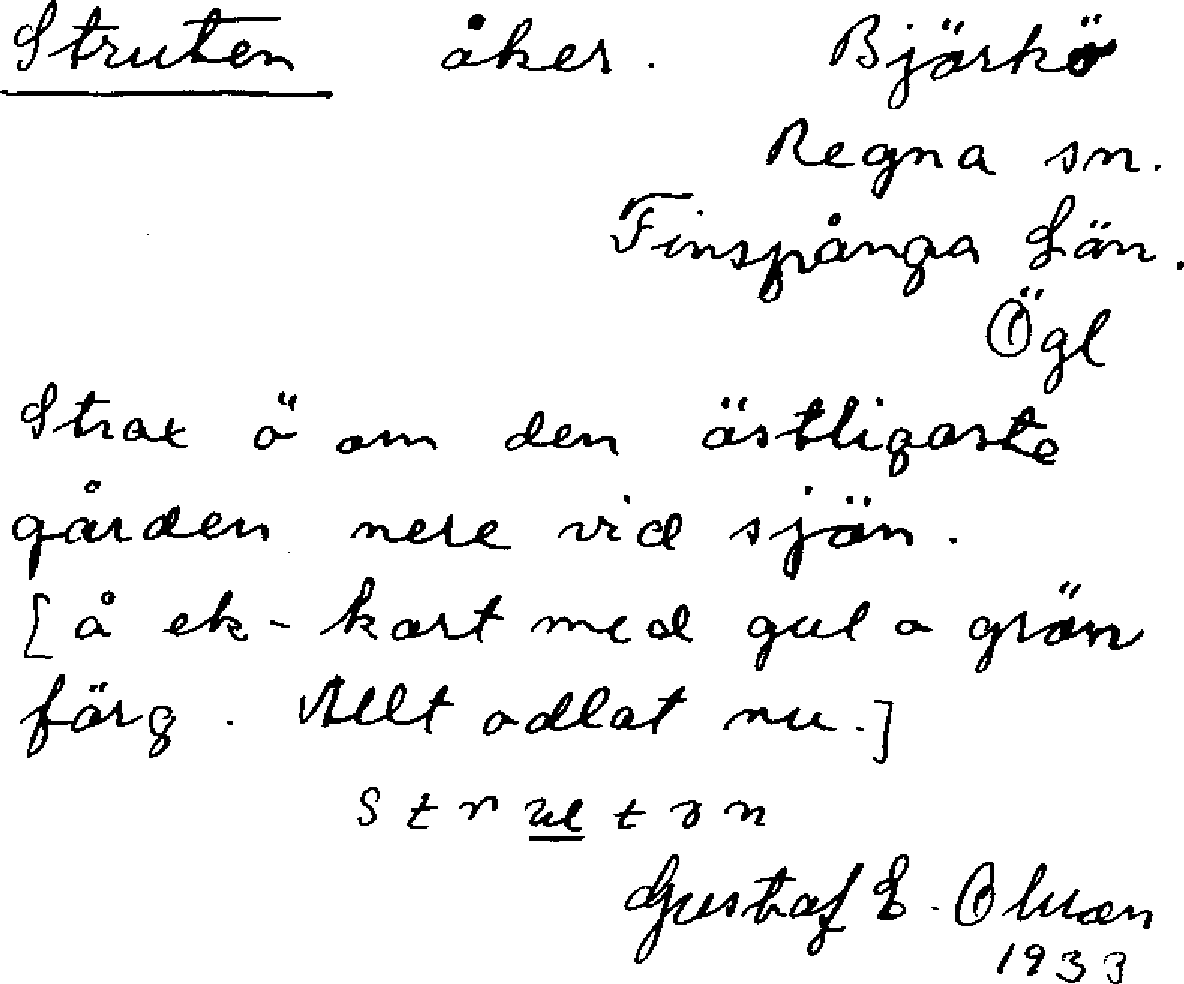 Struten åker. Björkö
Regna sn.
Finspånga Län.
Ögl
Strax ö om den östligaste
gården nere vid sjön.
[å ek-kart med gul o grön
färg. Allt odlat nu.]
Gustaf E.
1933